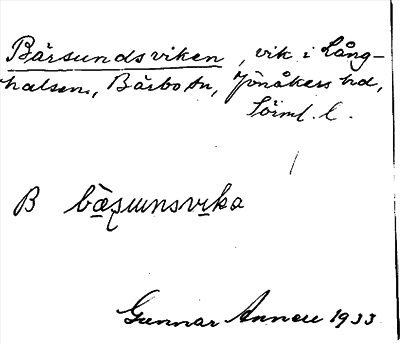 Bärsundsviken, vik i Lång-
halsen, Bärbo sn, Jönåkers hd,
Sörml. l.
B bæ̀ʂunsvika
Gunnar Anneu 1933